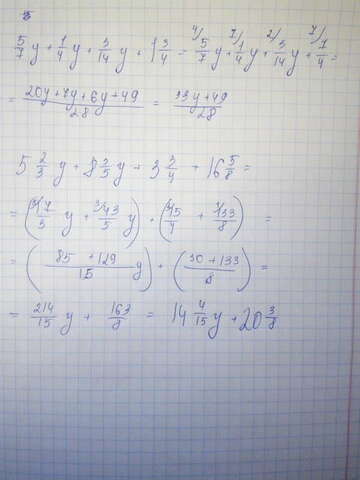 5/7 y + 1/4 y + 3/14 y + 1 3/4 = 4/ 5/7 y + 7/ 1/4 y + 2/ 3/14 y + 7/ 7/4 =
= (20y + 7y + 6y + 49)/28 = (33y + 49)/28
5 2/3 y + 8 3/5 y + 3 3/4 + 16 5/8 =
= (17/3 y + 43/5 y) + (15/4 + 133/8) =
= ((85 + 129)/15 y) + ((30 + 133)/8) =
= 214/15 y + 163/8 = 14 4/15 y + 20 3/8